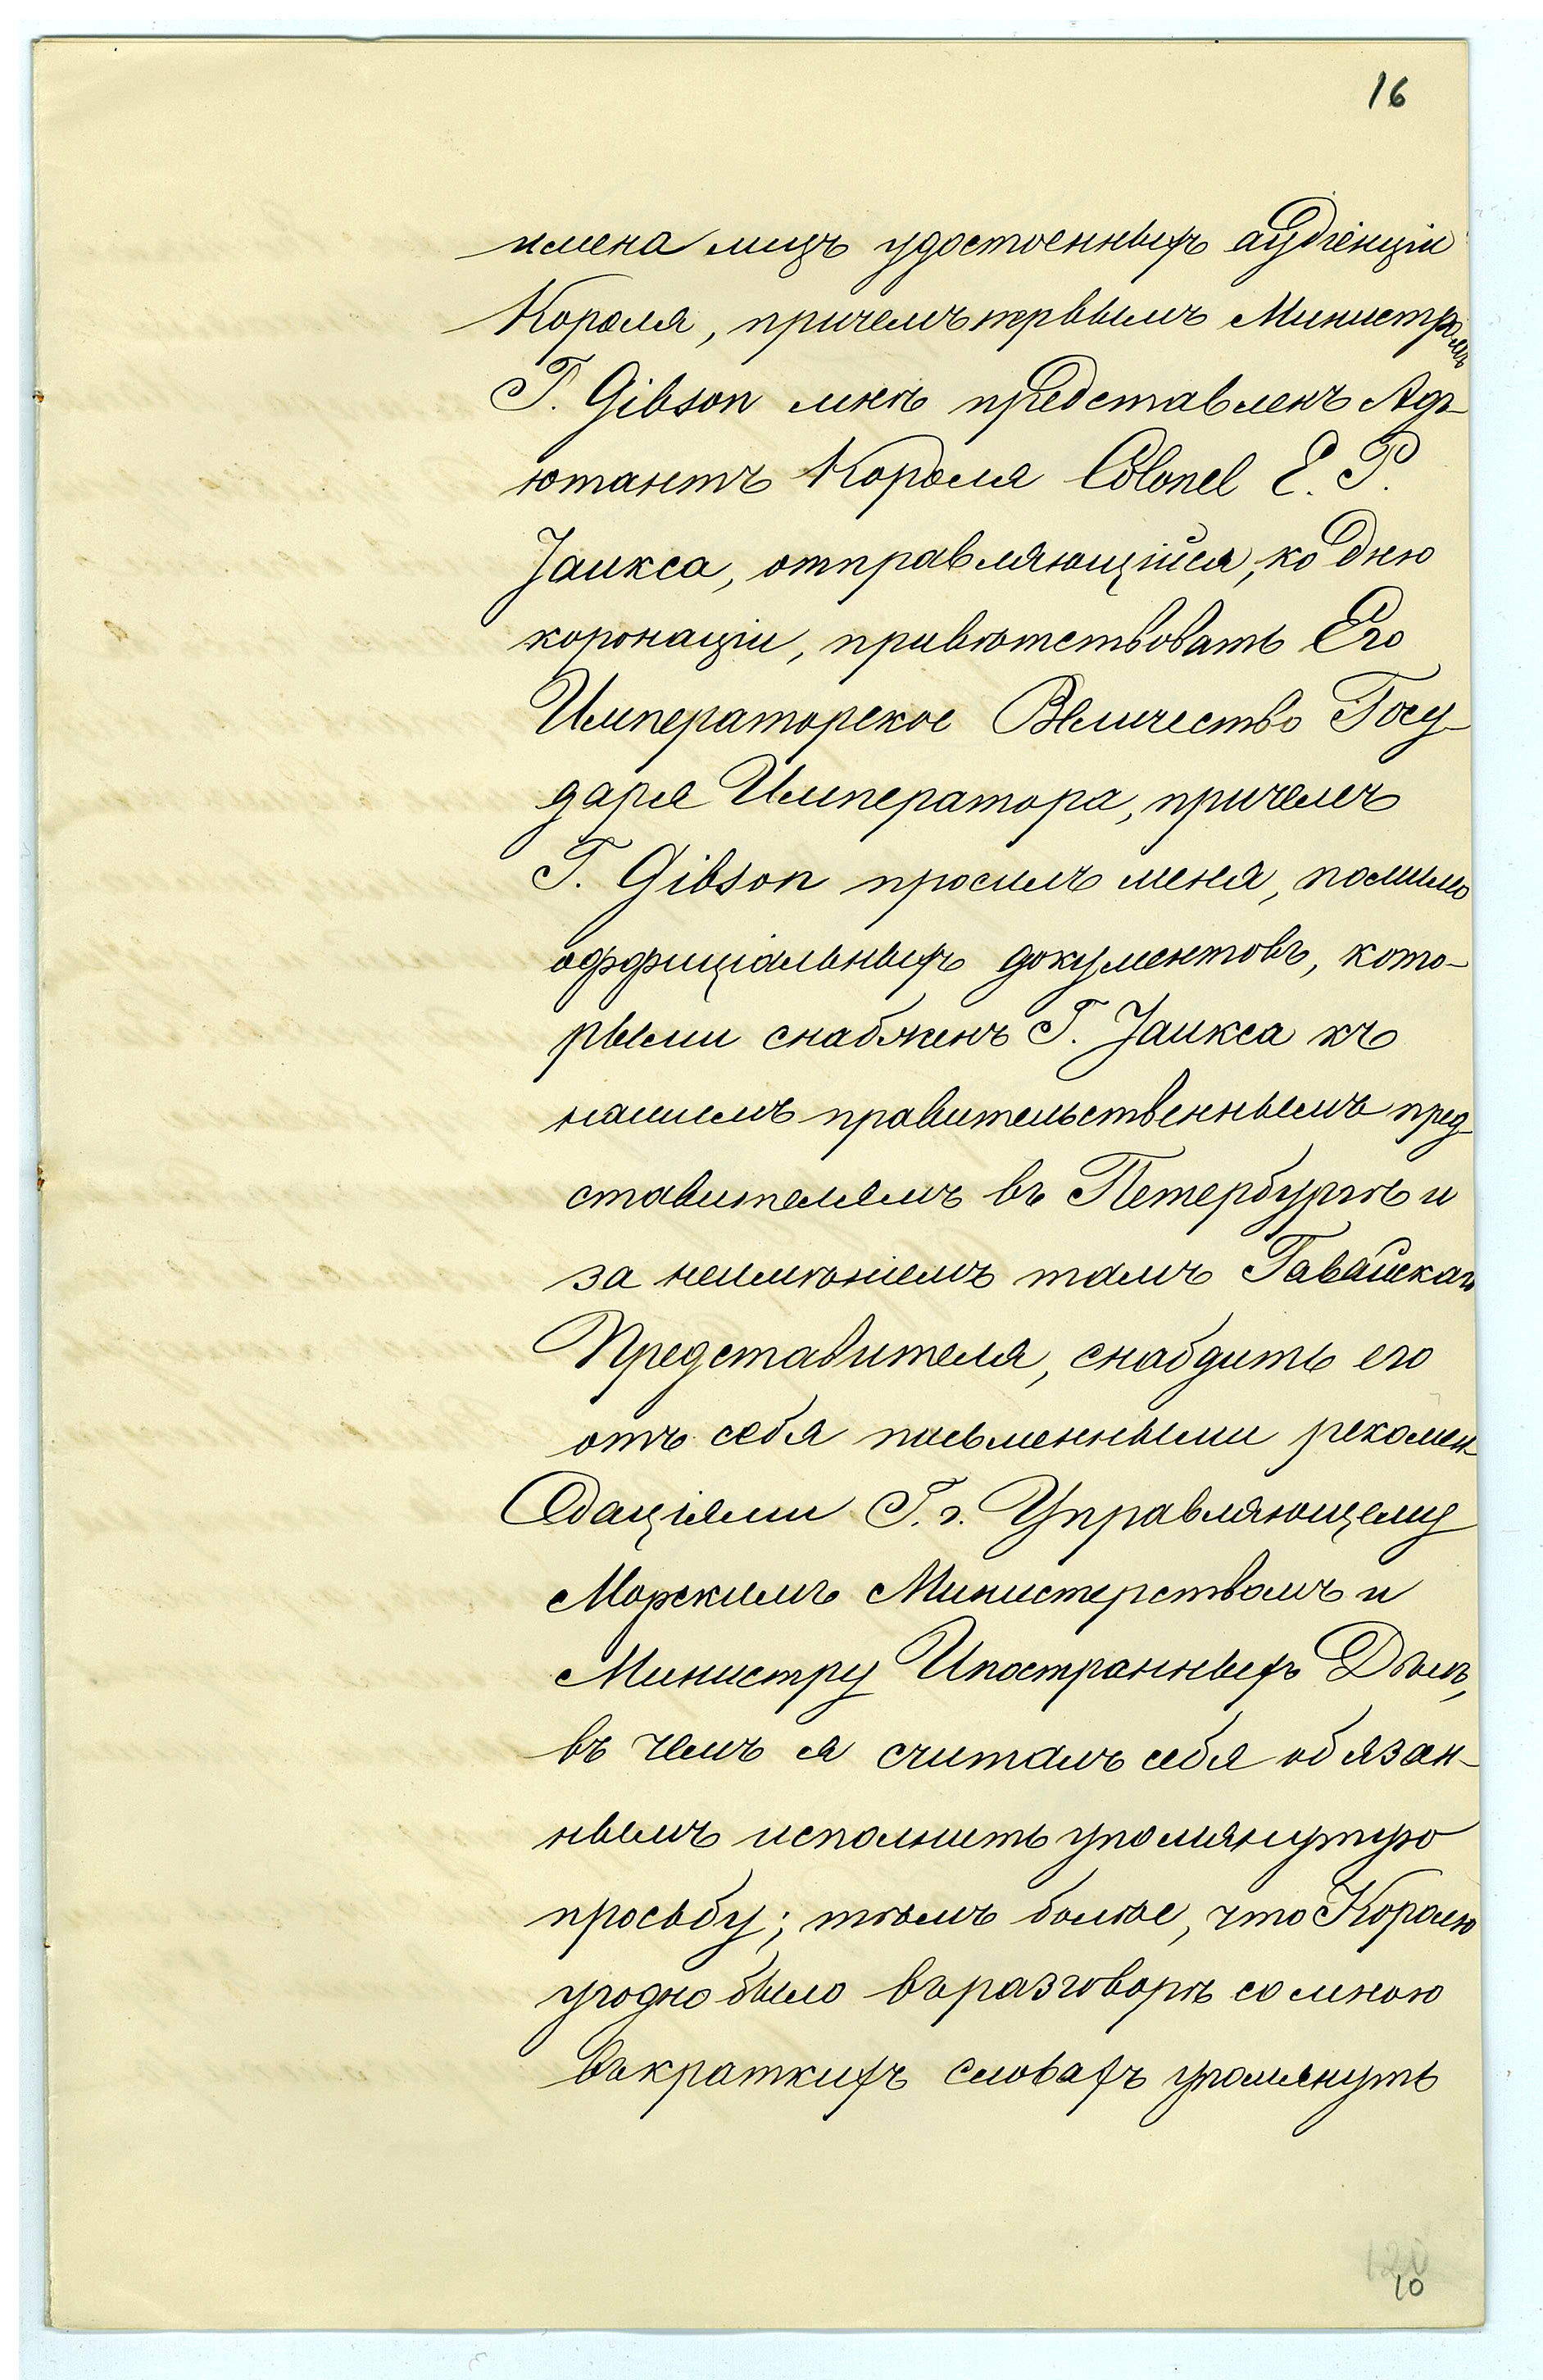 16
имена лицъ удостоенныхъ аудіенціи
Короля, причемъ первымъ Министромъ
Г. Gibson мнѣ представленъ Адъ-
ютантъ Короля Colonel C. P.
Jаикеа, отправляющійся, ко дню
коронаціи, привѣтствовать Его
Императорское Величество Госу-
даря Императора, причемъ
Г. Gibson просилъ меня, помимо
оффиціальныхъ документовъ, кото-
рыми снабженъ Г. Jаикеа къ
нашимъ правительственнымъ пред-
ставителямъ въ Петербургѣ и
за неимѣніемъ тамъ Гавайскаго
Представителя, снабдить его
отъ себя письменными рекомен-
даціями Г.г. Управляющему
Морскимъ Министерствомъ и
Министру Иностранныхъ Дѣлъ,
въ чемъ я считалъ себя обязан-
нымъ исполнить упомянутую
просьбу; тѣмъ болѣе, что Королю
угодно было въ разговорѣ со мною
въ краткихъ словахъ упомянуть
120
10